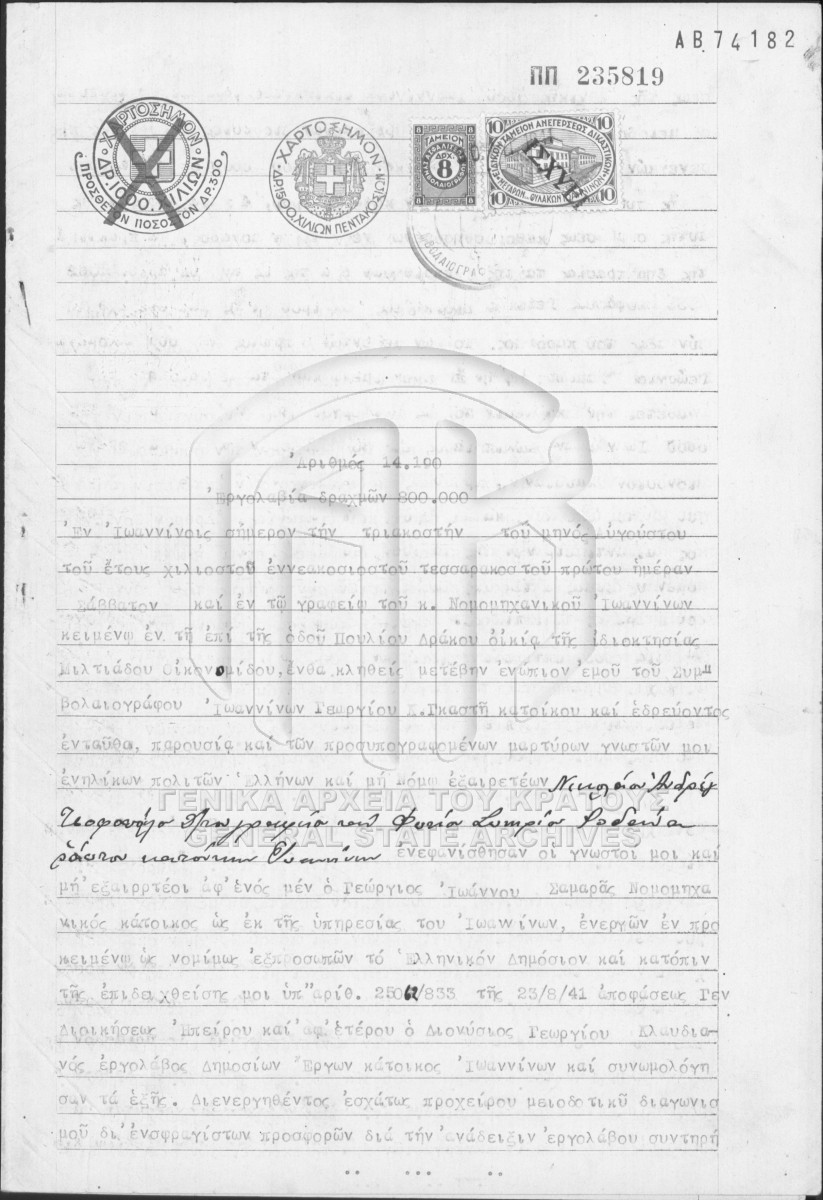 ΑΒ 74182
ΠΠ 235819
ΧΑΡΤΟΣΗΜΟΝ
ΔΡ. 1000. ΧΙΛΙΩΝ
ΠΡΟΣΘΕΤΟΝ ΠΟΣΟΣΤΟΝ ΔΡ. 300
ΧΑΡΤΟΣΗΜΟΝ
ΔΡ. 1500. ΧΙΛΙΩΝ ΠΕΝΤΑΚΟΣΙΩΝ
8 8
ΤΑΜΕΙΟΝ
ΔΡΧ.
8
8 8
10 10
ΤΑΜΕΙΟΝ ΑΝΕΓΕΡΣΕΩΣ ΔΙΚΑΣΤΙΚΩΝ
10 10
Ἀριθμός 14.190
Ἐργολαβία δραχμῶν 800.000
Ἐν Ἰωαννίνοις σήμερον τήν τριακοστήν τοῦ μηνός Αὐγούστου
τοῦ ἔτους χιλιοστοῦ ἐννεακοσιοστοῦ τεσσαρακοστοῦ πρώτου ἡμέραν
Σάββατον καί ἐν τῷ γραφείῳ τοῦ κ. Νομομηχανικοῦ Ἰωαννίνων
κειμένῳ ἐν τῇ ἐπί τῆς ὁδοῦ Πουλίου Δράκου οἰκίᾳ τῆς ἰδιοκτησίας
Μιλτιάδου Οἰκονομίδου, ἔνθα κληθείς μετέβην ἐνώπιον ἐμοῦ τοῦ Συμ"
βολαιογράφου Ἰωαννίνων Γεωργίου Χ. Γκαστῆ κατοίκου καί ἑδρεύοντος
ἐνταῦθα, παρουσίᾳ καί τῶν προσυπογραφομένων μαρτύρων γνωστῶν μοι
ἐνηλίκων πολιτῶν Ἑλλήνων καί μή νόμῳ ἐξαιρετέων Νικολάου Ἀνδρέ
ΓΕΝΙΚΑ ΑΡΧΕΙΑ ΤΟΥ ΚΡΑΤΟΥΣ
GENERAL STATE ARCHIVES
κατοίκων Ἰωαννίνων ἐνεφανίσθησαν οἱ γνωστοί μοι καί
μή ἐξαιρρτέοι ἀφ' ἑνός μέν ὁ Γεώργιος Ἰωάννου Σαμαρᾶς Νομομηχα
νικός κάτοικος ὡς ἐκ τῆς ὑπηρεσίας του Ἰωαννίνων, ἐνεργῶν ἐν προ
κειμένῳ ὡς νομίμως ἐξπροσωπῶν τό Ἑλληνικόν Δημόσιον καί κατόπιν
τῆς ἐπιδειχθείσης μοι ὑπ' ἀριθ. 25062/833 τῆς 23/8/41 ἀποφάσεως Γεν
Διοικήσεως Ἠπείρου καί ἀφ' ἑτέρου ὁ Διονύσιος Γεωργίου Κλαυδια-
νός ἐργολάβος Δημοσίων Ἔργων κάτοικος Ἰωαννίνων καί συνωμολόγη
σαν τά ἑξῆς. Διενεργηθέντος ἐσχάτως προχείρου μειοδοτικῦ διαγωνισ
μοῦ δι' ἐνσφραγίστων προσφορῶν διά τήν ἀνάδειξιν ἐργολάβου συντηρή